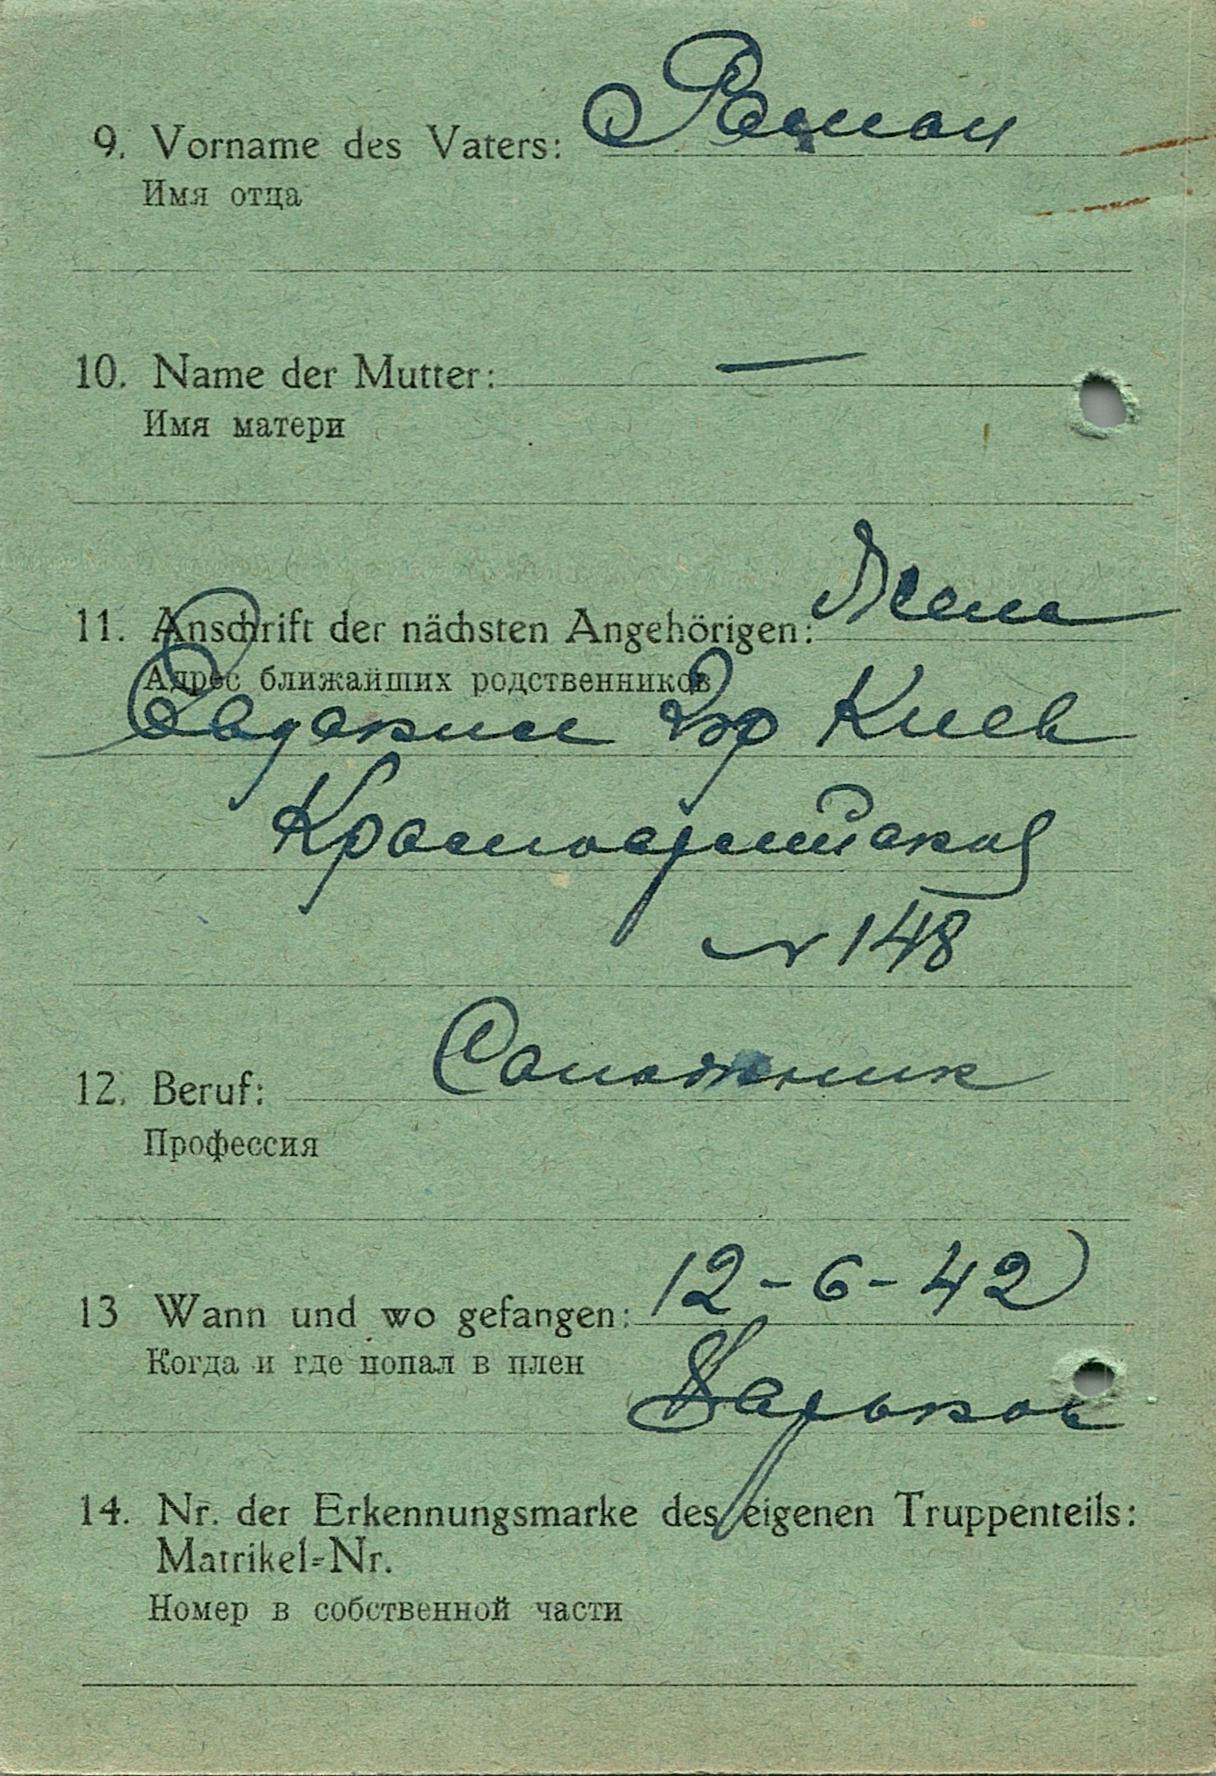 9. Vorname des Vaters: Роман
Имя отца
10. Name der Mutter: —
Имя матери
11. Anschrift der nächsten Angehörigen: Жена
Адрес ближайших родственников
гор Киев
Красноармейская
N 148
12. Beruf: Сапожник
Профессия
13 Wann und wo gefangen: 12-6-42
Когда и где попал в плен
Харьков
14. Nr. der Erkennungsmarke des eigenen Truppenteils:
Matrikel-Nr.
Номер в собственной части